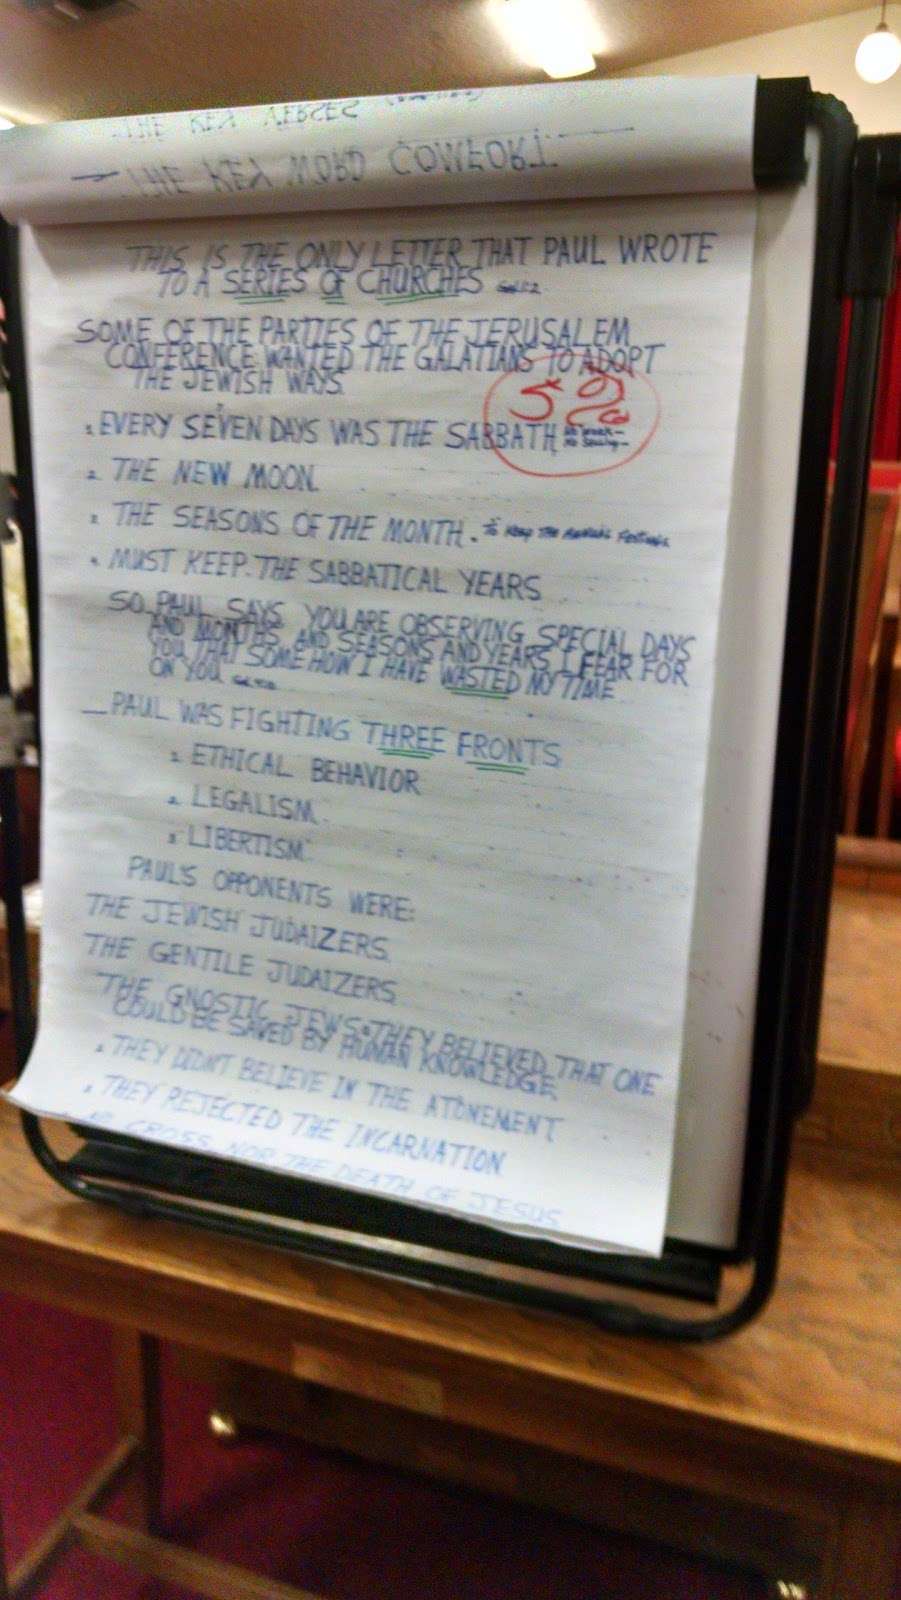 THE KEY VERSES
THE KEY WORD COMFORT
THIS IS THE ONLY LETTER THAT PAUL WROTE
TO A SERIES OF CHURCHES Gal. 1:2
SOME OF THE PARTIES OF THE JERUSALEM
CONFERENCE WANTED THE GALATIANS TO ADOPT
THE JEWISH WAYS.
1. EVERY SEVEN DAYS WAS THE SABBATH. No work—
No
2. THE NEW MOON.
3. THE SEASONS OF THE MONTH. To Keep The Annual Festivals
4. MUST KEEP THE SABBATICAL YEARS
SO PAUL SAYS YOU ARE OBSERVING SPECIAL DAYS
AND MONTHS AND SEASONS AND YEARS I FEAR FOR
YOU THAT SOME HOW I HAVE WASTED MY TIME
ON YOU
— PAUL WAS FIGHTING THREE FRONTS
1. ETHICAL BEHAVIOR
2. LEGALISM.
3. LIBERTISM.
PAUL'S OPPONENTS WERE:
THE JEWISH JUDAIZERS.
THE GENTILE JUDAIZERS
THE GNOSTIC JEWS. THEY BELIEVED THAT ONE
COULD BE SAVED BY HUMAN KNOWLEDGE.
THEY DIDN'T BELIEVE IN THE ATONEMENT
THEY REJECTED THE INCARNATION
NO CROSS NOR THE DEATH OF JESUS